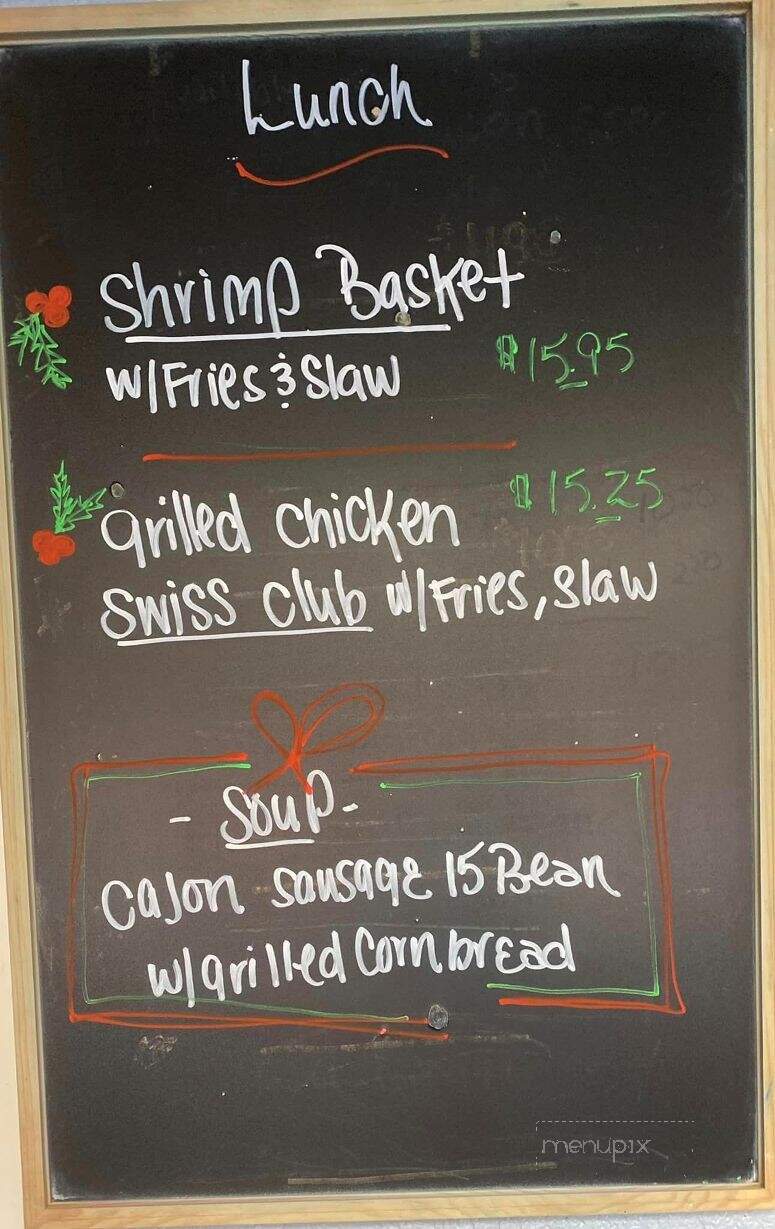 Lunch
Shrimp Basket
w/Fries & Slaw $15.95
grilled chicken $15.25
Swiss Club w/Fries, Slaw
- Soup -
Cajon Sausage 15 Bean
w/grilled Cornbread
menupix